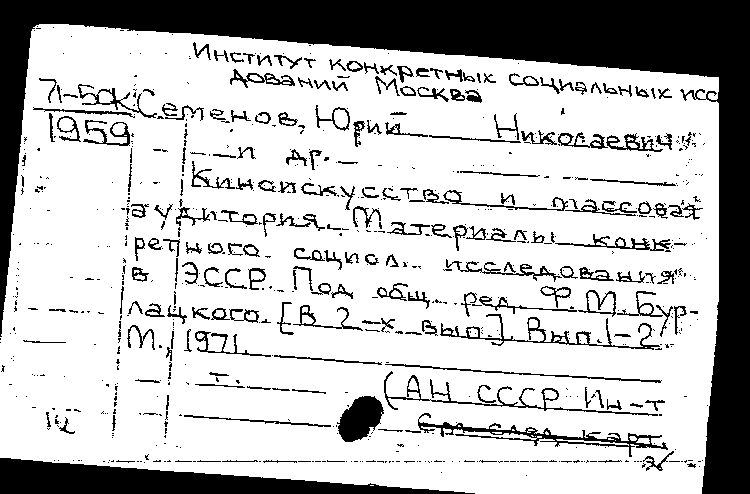 Институт конкретных социальных исс
дований Москва
71-50К Семенов, Юрий Николаевич
1959
и др.
Киноискусство и массовая
аудитория. Материалы конк-
ретного социол. исследования
в ЭССР. Под общ. ред. Ф.М. Бур-
лацкого. [В 2-х вып]. Вып. 1-2/
М., 1971.
т. (АН СССР Ин-т
См след. карт.